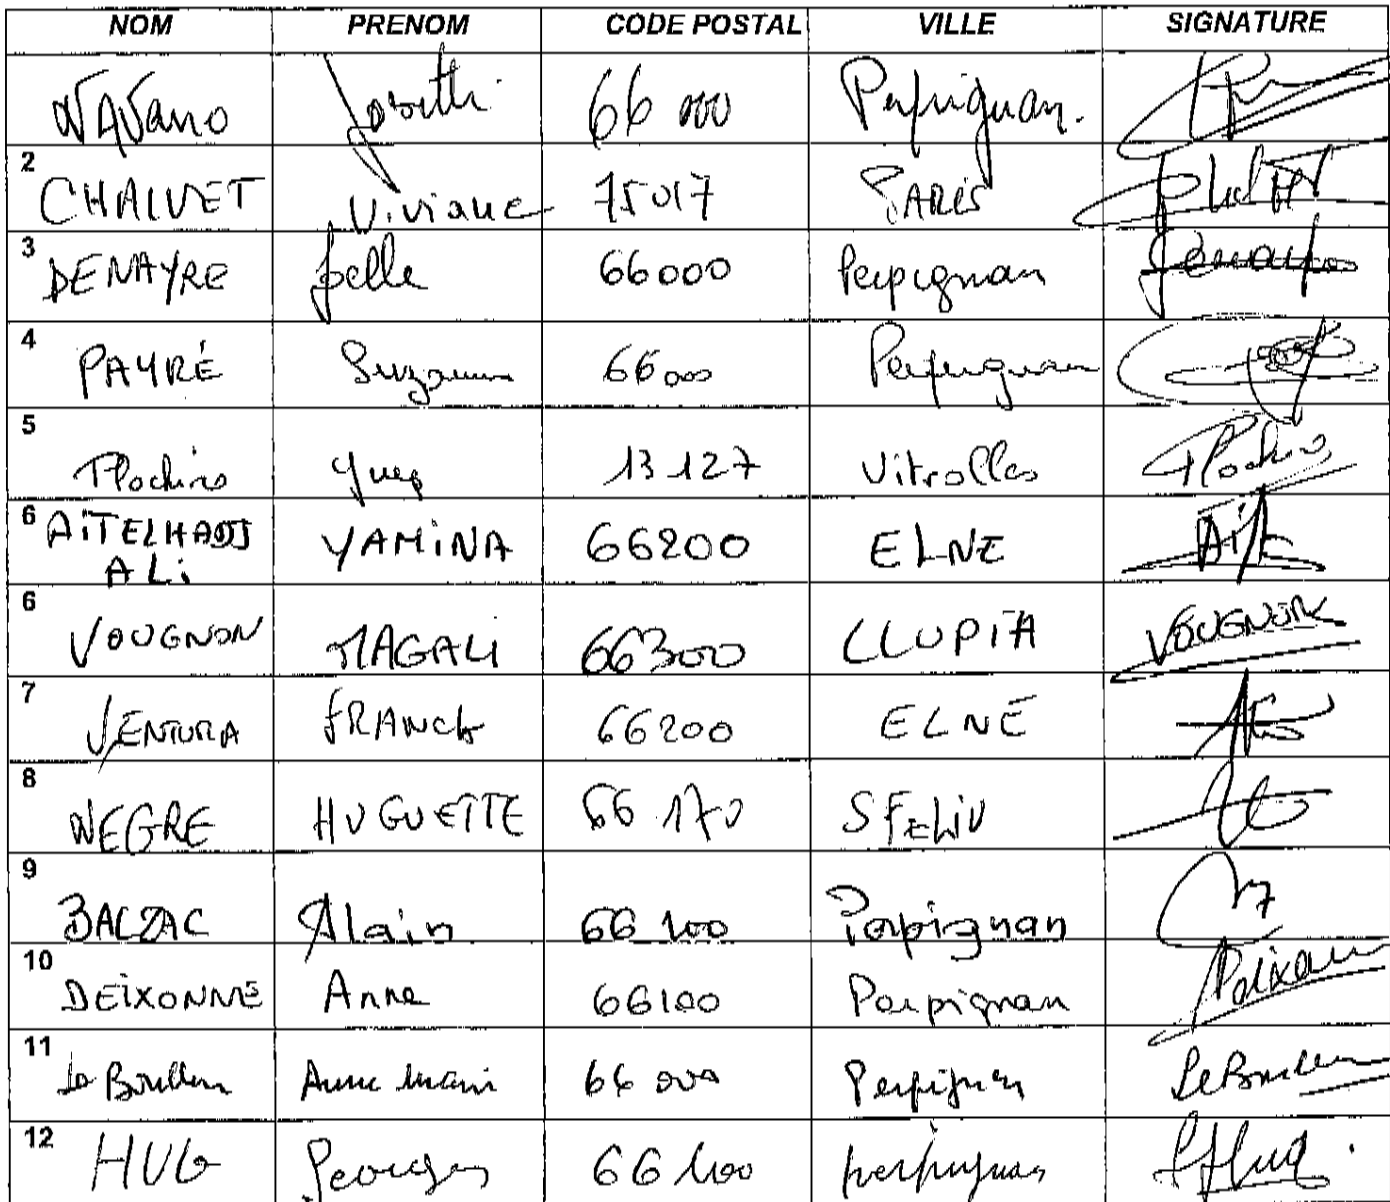 NOM PRENOM CODE POSTAL VILLE SIGNATURE
NAVarro Josette 66 000 Perpignan.
2 CHAUVET Viviane 75017 PARIS
3 DENAYRE Joelle 66000 Perpignan Denayre
4 PAYRÉ Suzanne 66000 Perpignan
5 Plochino Yves 13127 Vitrolles Plochino
6 AÏTELHADJ YAMiNA 66200 ELNE Ait
ALi
6 VOUGNON MAGALi 66300 LLUPIA VOUGNON
7 VENTURA FRANCK 66200 ELNE
8 NEGRE HUGUETTE 66 170 S FELiU
9 BALZAC Alain 66 100 Perpignan
10 DEIXONNE Anne 66100 Perpignan
11 Anne Marie 66 000 Perpignan
12 HUG Georges 66 100 perpignan Hug